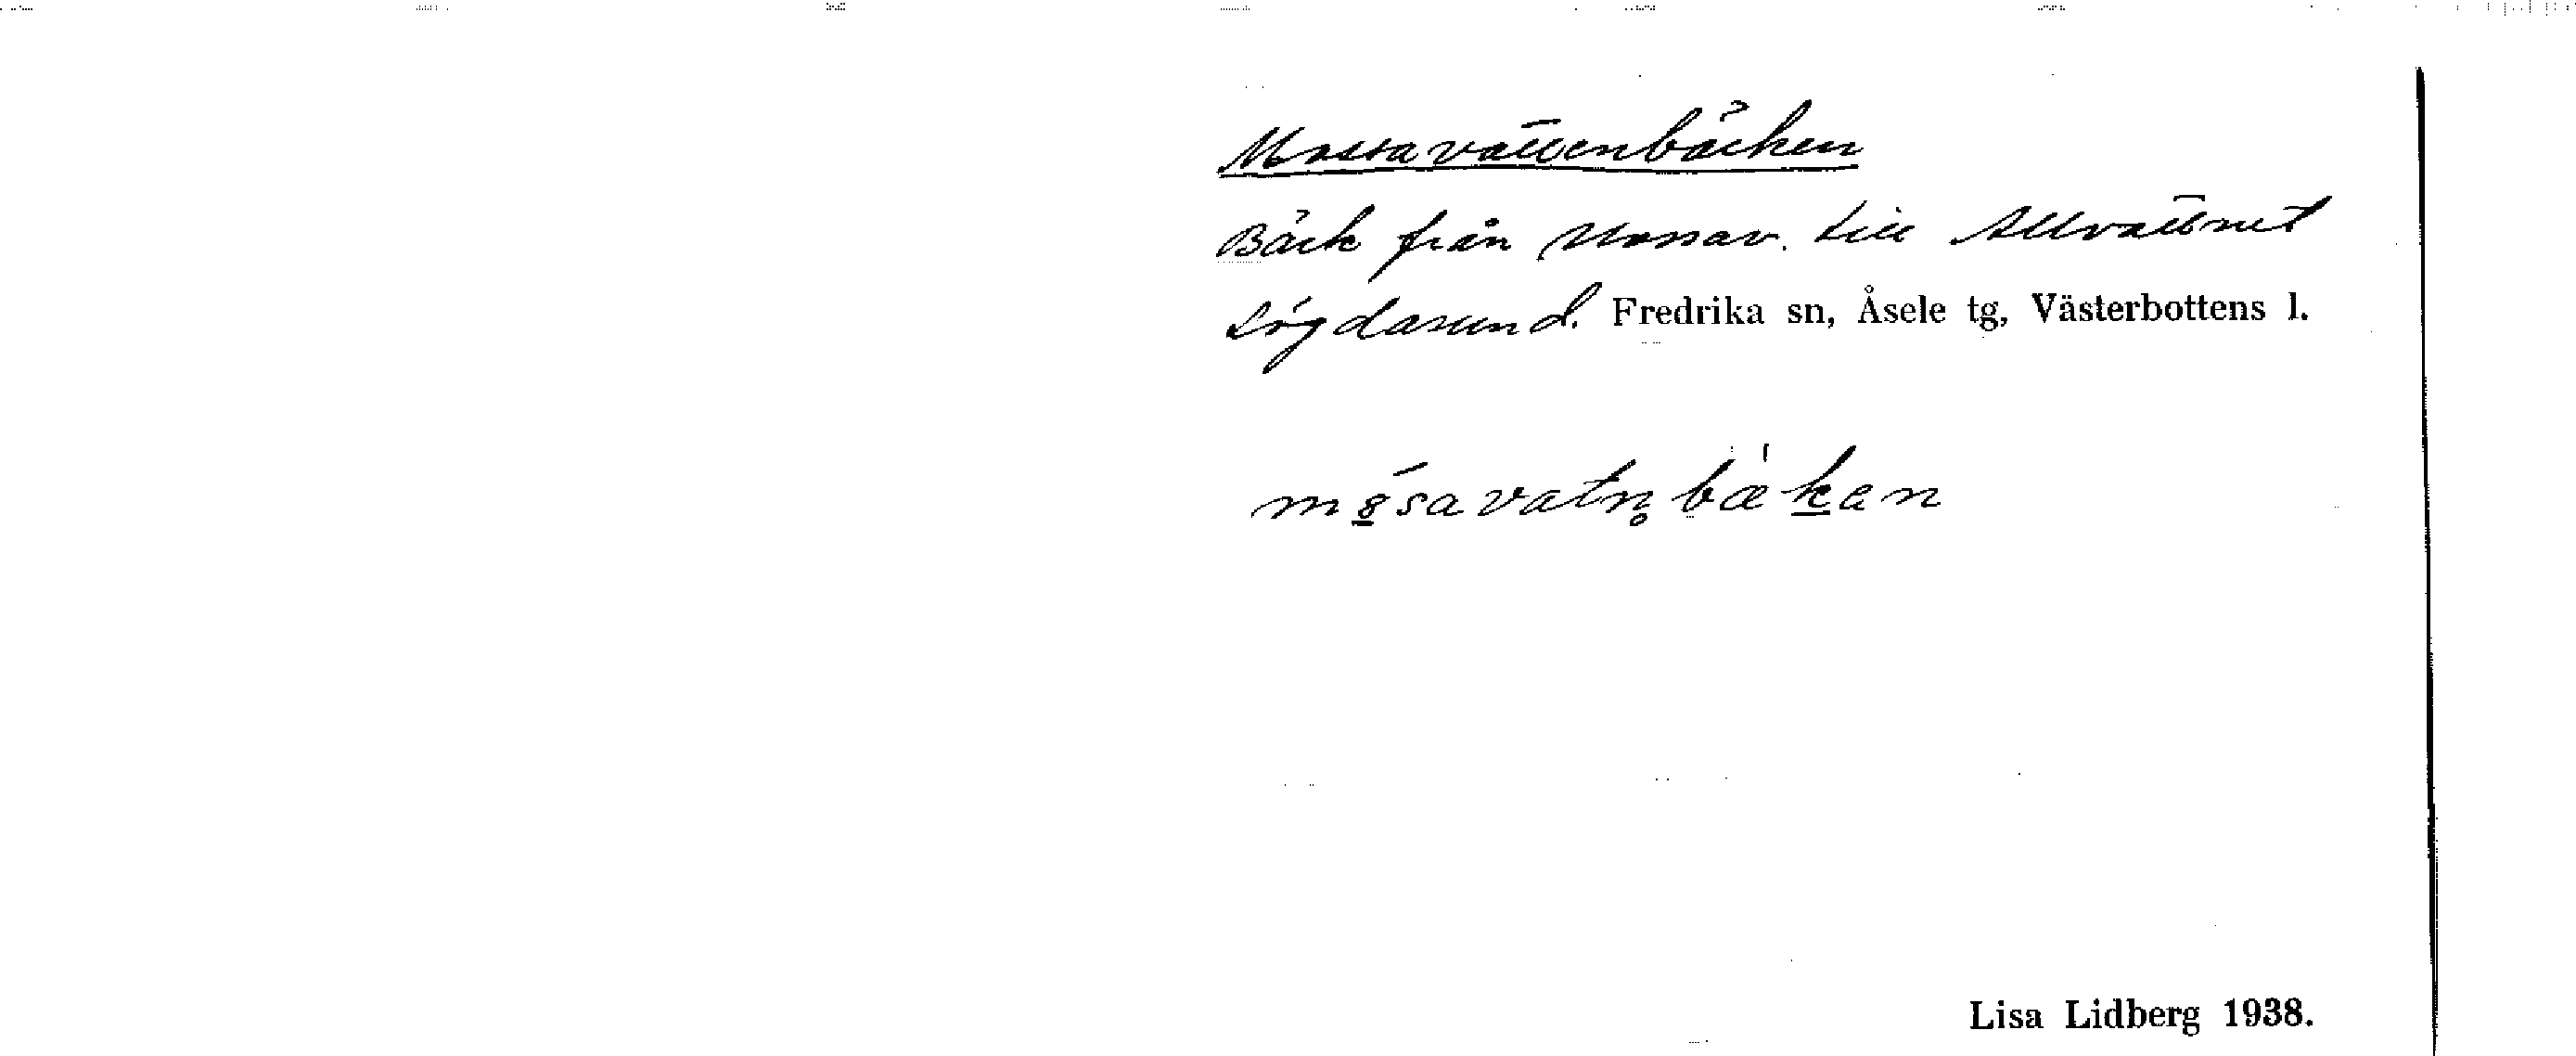 Mossavattenbäcken
Bäck från Mossav. till Allvattnet
Lögdasund. Fredrika sn, Åsele tg, Västerbottens l.
mósavatn̥bækan
Lisa Lidberg 1938.